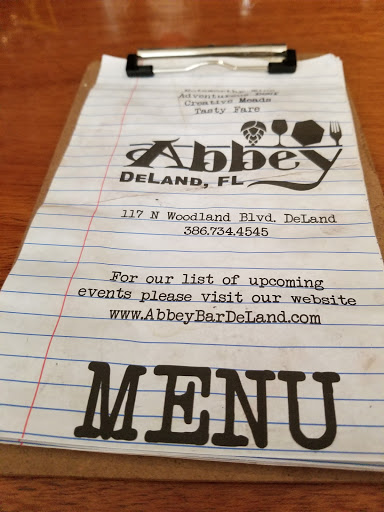 Adventurous Beer
Creative Meads
Tasty Fare
Abbey
DeLand, FL
117 N Woodland Blvd. DeLand
386.734.4545
For our list of upcoming
events please visit our website
www.AbbeyBarDeLand.com
MENU